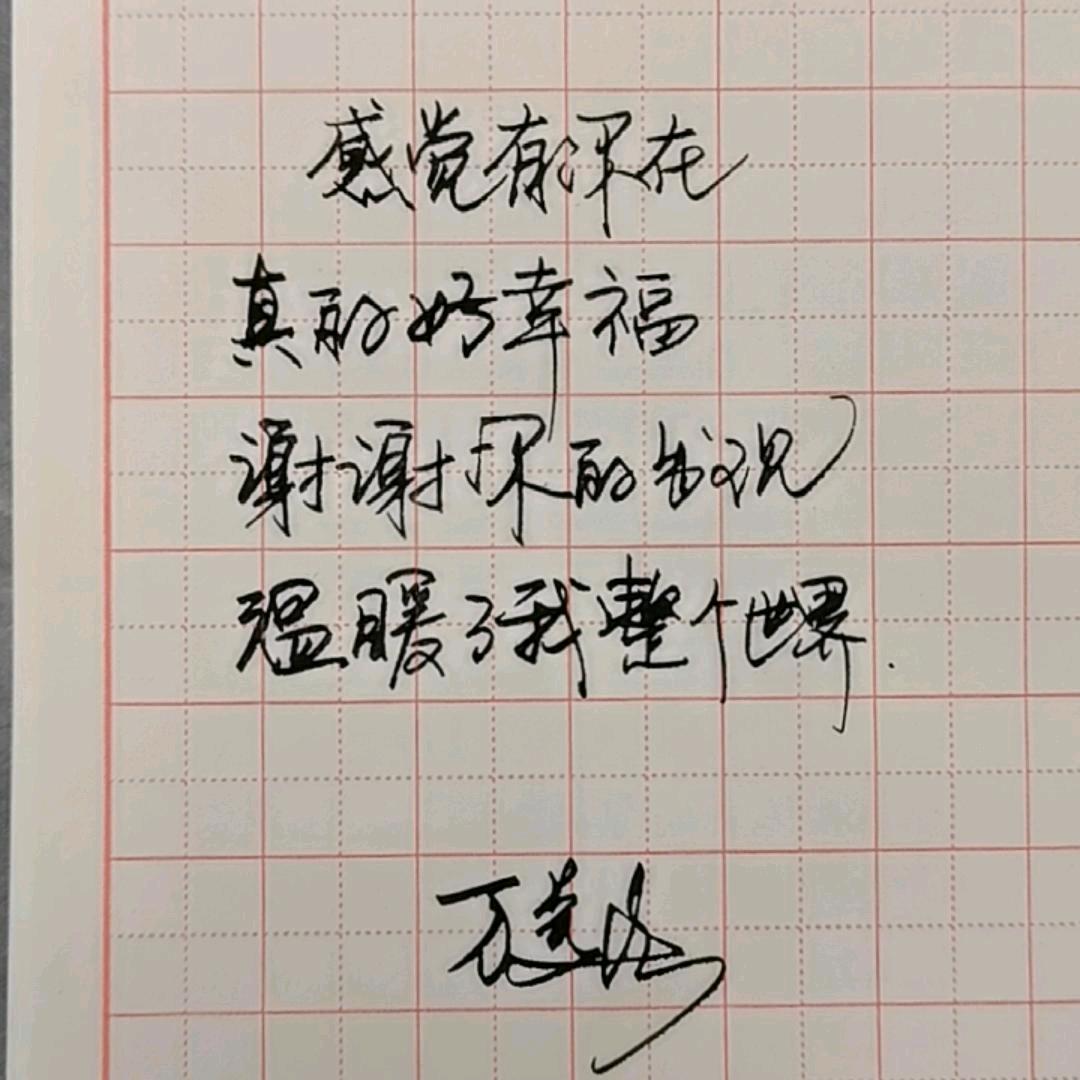 感觉有深在
真的好幸福
谢谢深的出现
温暖了我整个世界.